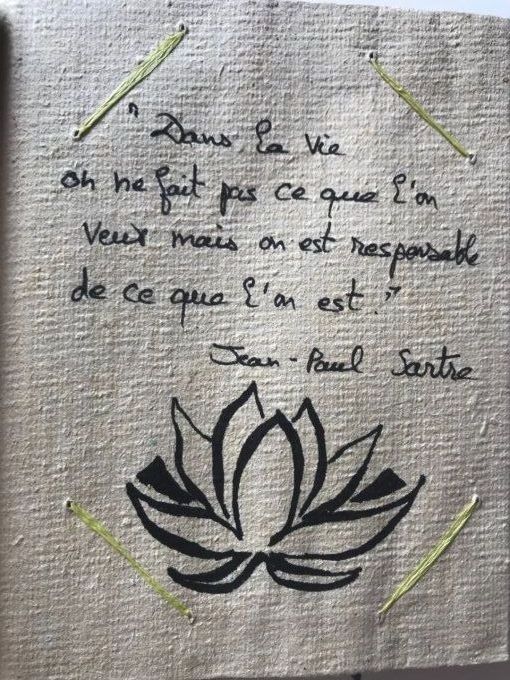 " Dans la vie
on ne fait pas ce que l'on
veux mais on est responsable
de ce que l'on est. "
Jean-Paul Sartre